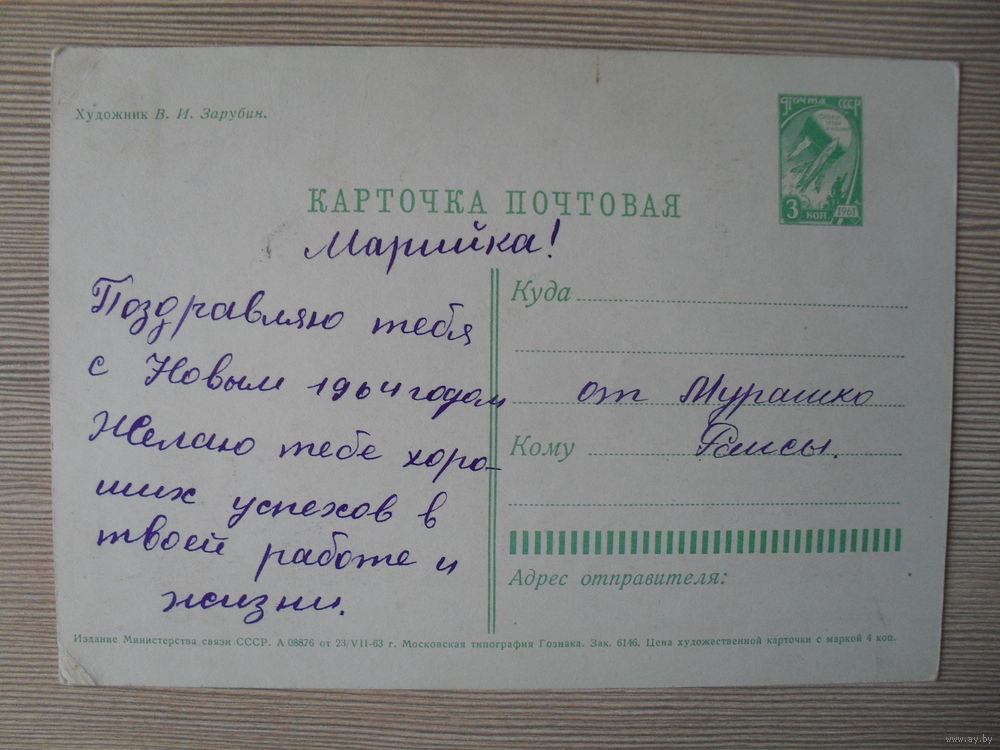 Художник В. И. Зарубин.
Почта СССР
3 коп 1961
КАРТОЧКА ПОЧТОВАЯ
Марийка!
Поздравляю тебя
с Новым 1964 годом
Желаю тебе хоро-
ших успехов в
твоей работе и
жизни.
Куда
от Мурашко
Кому Раисы.
Адрес отправителя:
Издание Министерства связи СССР. А 08876 от 23/VII-63 г. Московская типография Гознака. Зак. 6146. Цена художественной карточки с маркой 4 коп.
www.ay.by